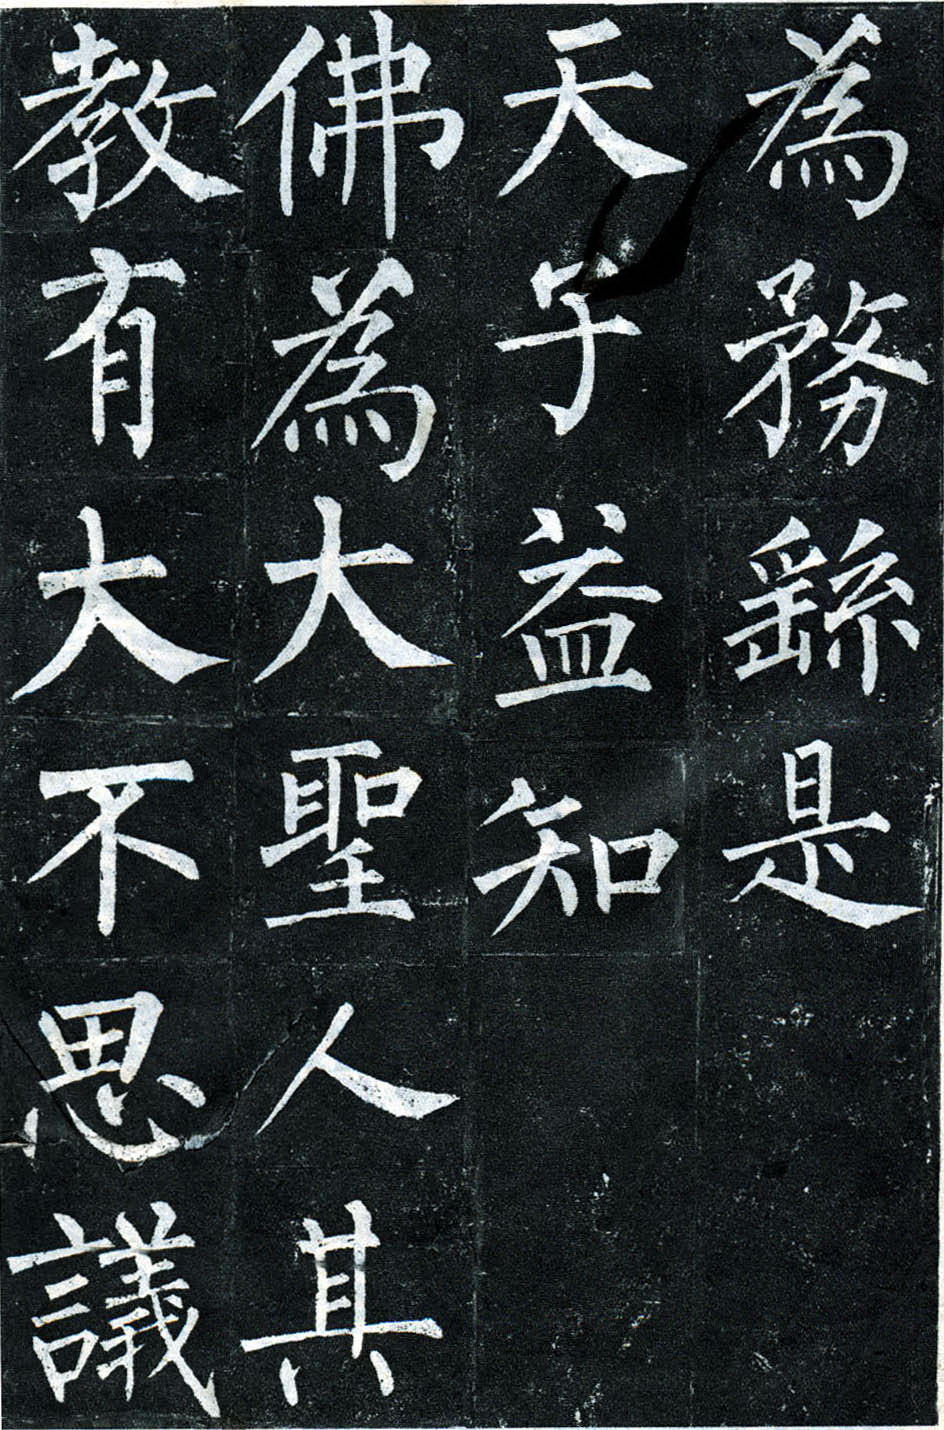 為務繇是
天子益知
佛為大聖人其
教有大不思議